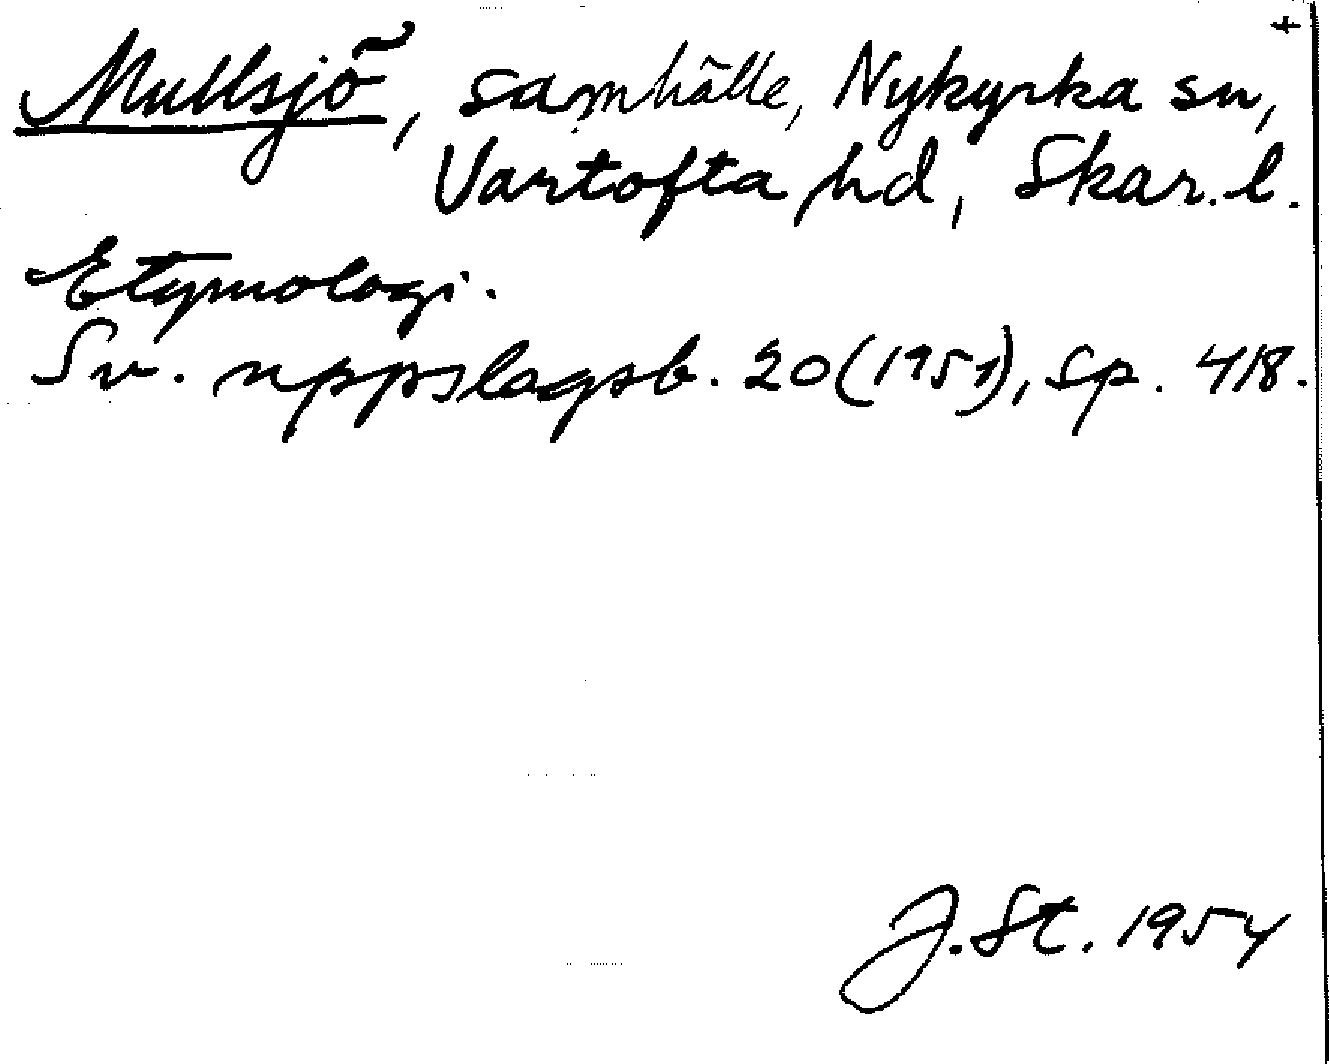 +
Mullsjö, samhälle, Nykyrka sn,
Vartofta hd, Skar. l.
Etymologi.
Sv. uppslagsb. 20 (1951), sp. 418.
J. St. 1954